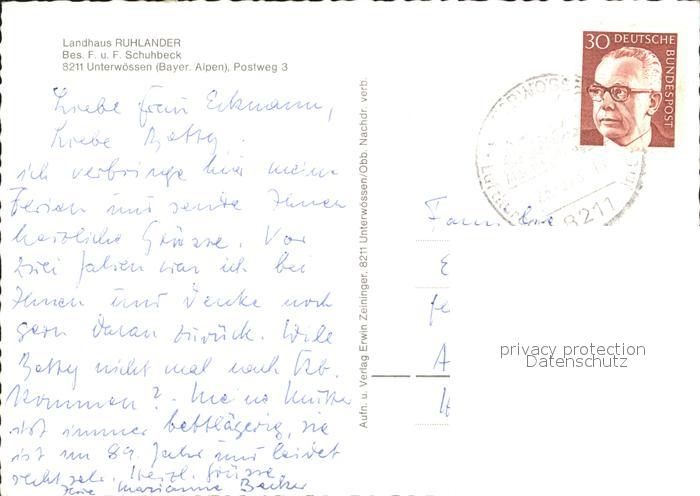 Landhaus RUHLANDER
Bes. F. u. F. Schuhbeck
8211 Unterwössen (Bayer. Alpen), Postweg 3
Liebe Frau Eckmann,
Liebe Betty,
ich verbringe hier meine
Ferien und sende Ihnen
herzliche Grüsse. Vor
zwei Jahren war ich bei
Ihnen und denke noch
gern daran zurück. Will
Betty nicht mal nach
kommen? Meine Mutter
ist immer bettlägerig, sie
ist im 89. Jahr und leidet
recht sehr. Herzl. Grüsse
Ihre Marianne Becker
Aufn. u. Verlag Erwin Zeininger, 8211 Unterwössen/Obb. Nachdr. verb.
30 DEUTSCHE
BUNDESPOST
8211
Familie
E
A
privacy protection
Datenschutz